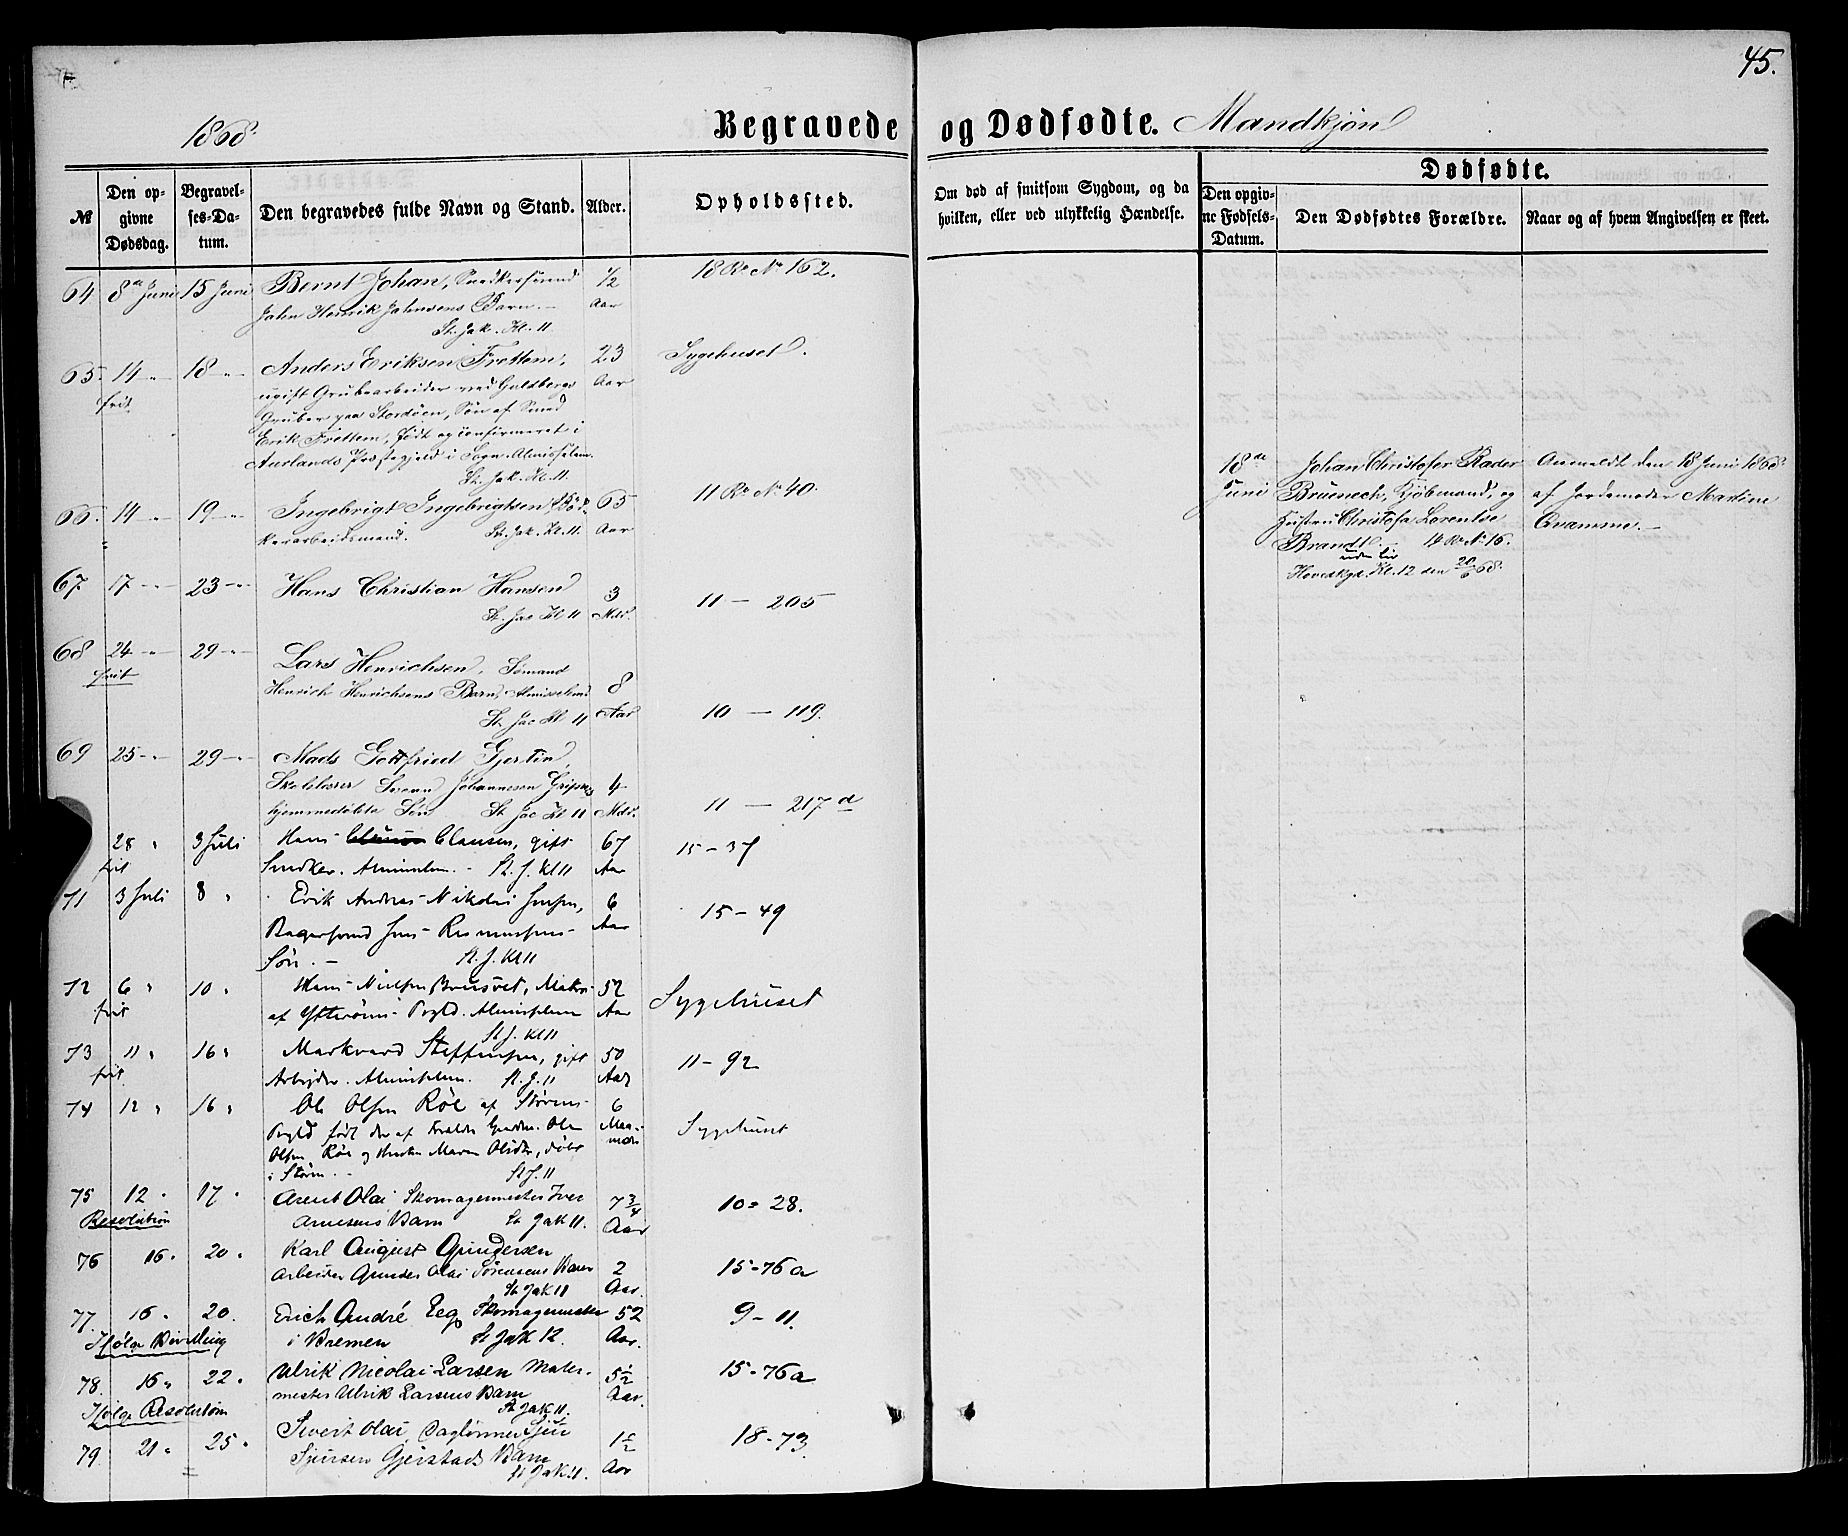 45.
1868.
Begravede og Dødfødte. Mandkjøn
№
Den opgivne Dødsdag.
Begravelses-Datum.
Den begravedes fulde Navn og Stand.
Alder.
Opholdssted.
Om død af smitsom Sygdom, og da hvilken, eller ved ulykkelig Hændelse.
Dødfødte.
Den opgivne Fødsels-Datum.
Den Dødfødtes Forældre.
Naar og af hvem Angivelsen er skeet.
64 8de Juni 15 Juni Bernt Johan, Snedkersvend 1/2 Aar 18 R. No 162.
John Henrik Johnsens Barn.
St. Jak. Kl. 11
65. 14 " 18 " Anders Eriksen Frettem, 23 Aar Sygehuset.
frit
ugift Grubearbeider ved Guldbergs
Gruber paa Stordøen, Søn af Smed
Erik Frettem, født og confirmeret i
Aurlands Præstegjeld i Sogn. Almisselem.
St. Jak. Kl. 11.
66. 14 " 19 " Ingebrigt Ingebrigtsen, Bød- 65 Aar 11 R. No 40.
kerarbeidsmand. St. Jak. Kl. 11.
67 17 " 23 " Hans Christian Hansen 3 Mdr. 11 — 205
St. Jac Kl 11
68 24 " 29 " Lars Henrichsen, Sømand 8 Aar 10 — 119.
frit
Henrich Henrichsens Barn, Almisselem
St. Jac Kl 11
69 25 " 29 " Mads Gottfried Gjertin, 4 Mdr. 11 — 217 d
Skolelærer Svenn Johannesen
hjemmedøbte Søn St Jac Kl 11
28 " 3 Juli Hans Clausen, gift 67 Aar 15 - 37
frit
Snedker. Almisselem. St. J. Kl 11
71 3 Juli 8 " Erik Andreas Nikolai Jensen, 6 Aar 15 - 49
Bagersvend Jens Rasmussens
Søn. St. J. Kl 11
72 6 " 10 " Hans Nielsen 52 Aar Sygehuset
frit
af Ytterøens Prgld. Almisselem
St J. Kl 11
73 11 " 16 " Markvard Steffensen, gift 50 Aar 11 - 92
frit
Arbejder. Almisselem. St. J. 11
74 12 " 16 " Ole Olsen Röe af Störens 6 Maaneder Sygehuset
Prgld född der af Forældre Gaardm. Ole
Olsen Röe og Hustru Maren Olsdtr, döbt
i Stören. St J. 11
75 12 " 17 " Arent Olai Skomagermester Iver 7 3/4 Aar 10 - 28.
Resolution
Arnesens Barn St Jak 11.
76 16 " 20 " Karl August Gundersen 2 Aar. 15 - 76 a
Arbeider Gunder Olai Sørensens Barn
St Jak 11
77 16 " 20. Erich André Eeg Skomagermester 52 Aar. 9 - 11.
Ifølge Bevilling
i Bremen St Jak 12.
78. 16 " 22 " Ulrik Nicolai Larsen Maler- 5 1/2 Aar. 15 - 76 a
Ifølge Resolution
mester Ulrik Larsens Barn
St Jak 11.
79. 21 " 25 " Sivert Olai, Daglønner Sjur 1 1/2 Aar 18 - 73
Sjursen Gjerstads Barn
St Jak 11.
18de Juni
Johan Christofer Rader
Bruenech, Kjøbmand, og
Hustru Christofa Lorentse
Brandt. 14 R. No 16.
uden liv
Hovedkgd. Kl. 12 den 20/6 68.
Anmeldt den 18 Juni 1868
af Jordemoder Martine
Qvamme.